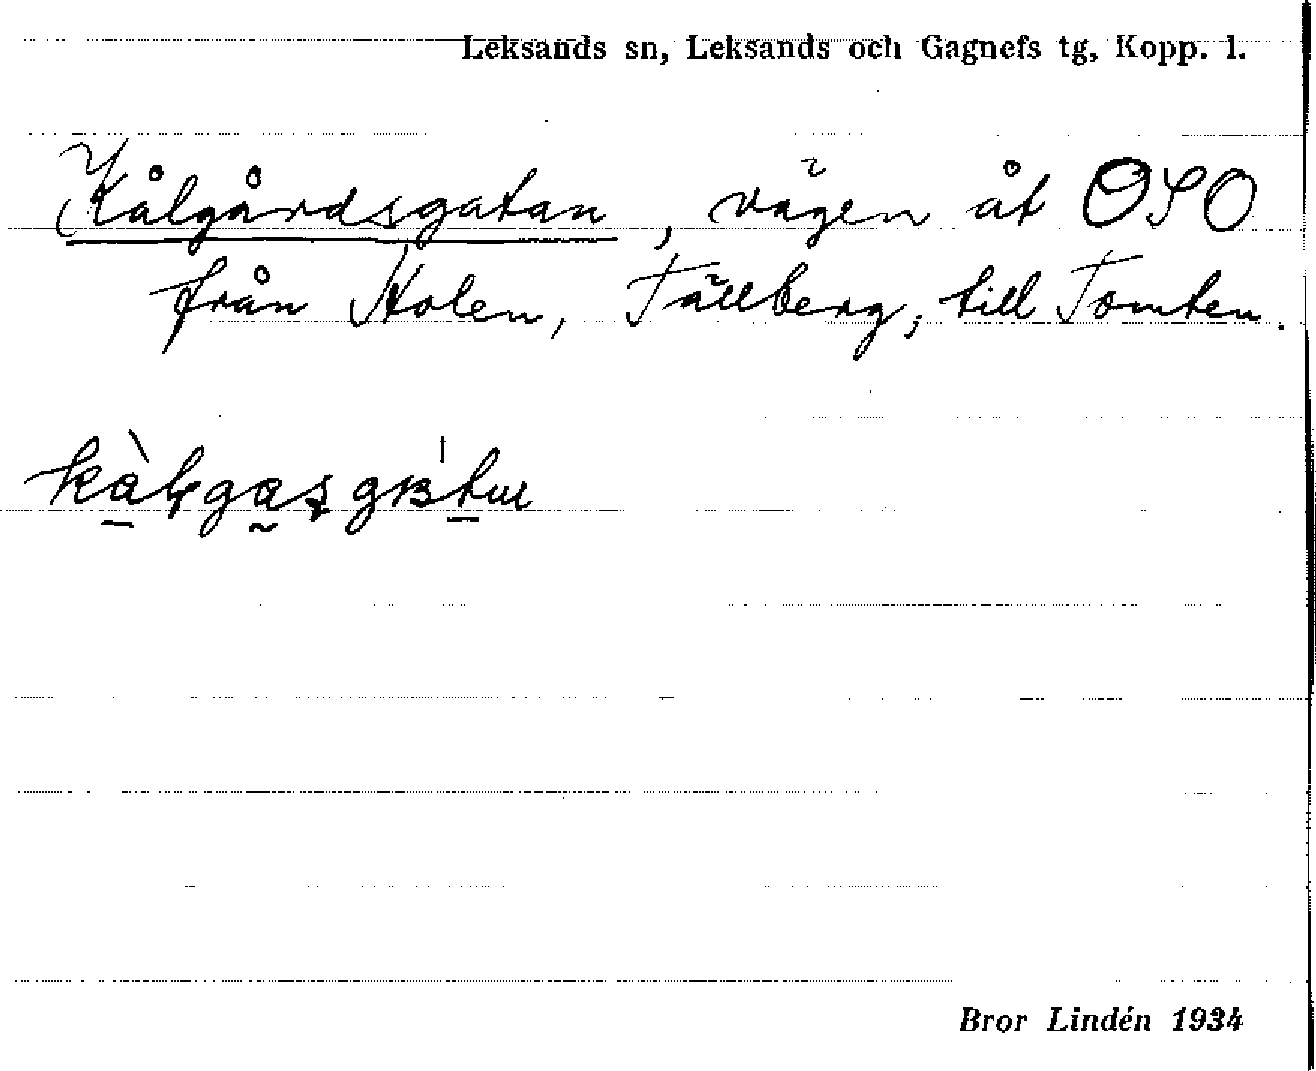 Leksands sn, Leksands och Gagnefs tg, Kopp. l.
Kålgårdsgatan, vägen åt OSO
från Holen, Tällberg, till Tomten.
Bror Lindén 1934